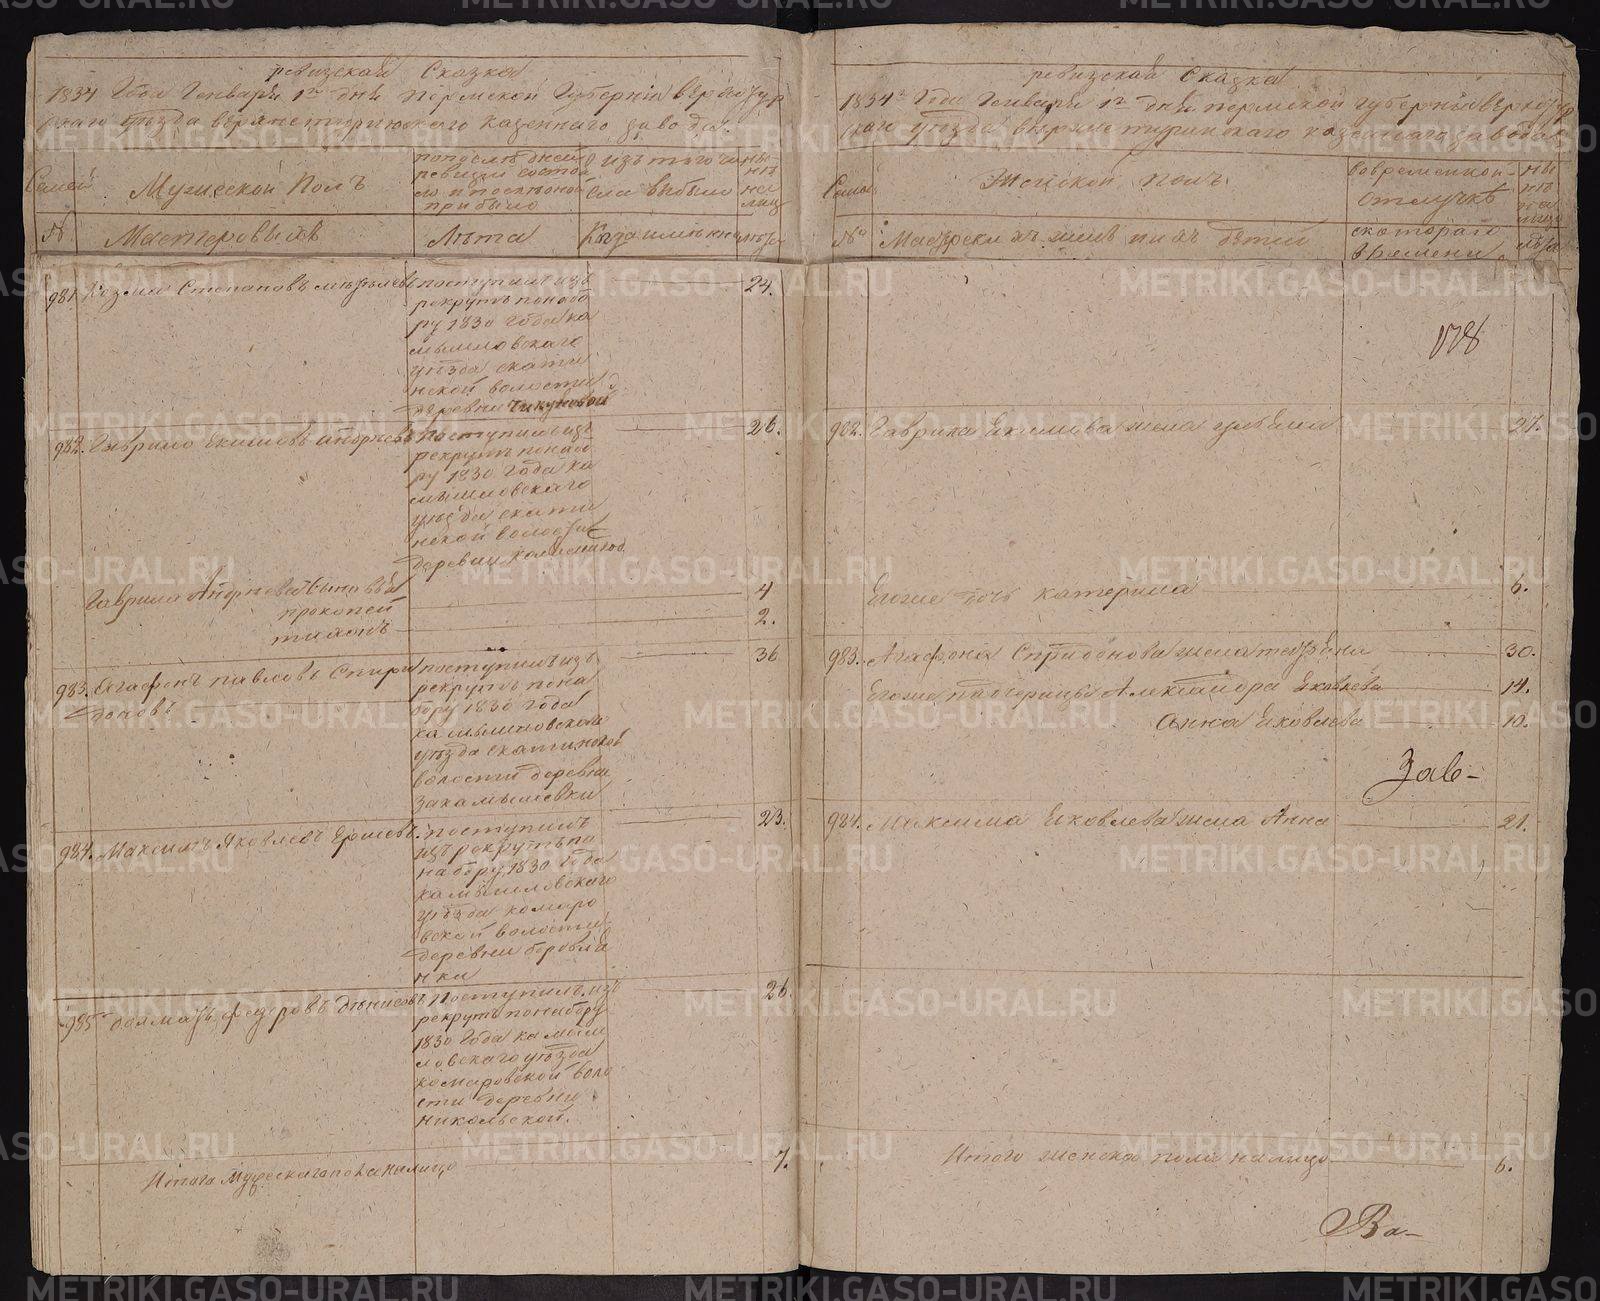 ревизская Сказка
1834 Года Генваря 1го дня Пермской Губернии верхотур
скаго уѣзда верхнетуринскаго казеннаго завода
Семей
Мужеской Полъ
попослѣдней
ревизіи состоя
ло и послѣ оной
прибыло
изъ того чи
сла выбыло
ны
нѣ
на
лицо
№
Мастеровыхъ
Лѣта
Когда именно
лѣта
981. Козма Степановъ
поступилъ изъ
24.
рекрутъ понабо
ру 1830 года ка
мышловскаго
уѣзда скати
нской волости
деревни Чикуновой
982. Гаврило Екимовъ
поступилъ изъ
26.
рекрутъ понабо
ру 1830 года ка
мышловскаго
уѣзда скати
нской волости
деревни
Гаврила сыновья
прокопей
4
тихонъ
2.
983. Агафонъ павловъ Спири
поступилъ изъ
36
доновъ
рекрутъ пона
бору 1830 года
камышловскаго
уѣзда скатинской
волости деревни
закамышевки
984. Максимъ Яковлевъ Ершевъ
поступилъ
23.
изъ рекрутъ по
набору 1830 года
камышловскаго
уѣзда комаро
вской волости
деревни боровля
нки
985 долматъ федоровъ Денисовъ
поступилъ изъ
26.
рекрутъ понабору
1830 года камыш
ловскаго уѣзда
комаровской воло
сти деревни
никольской.
Итого Мужескаго пола налицо
7.
ревизская Сказка
1834го Года Генваря 1го дня пермской губерніи верхотур
скаго уѣзда верхнетуринскаго казеннаго завода
Семей
Женской полъ
вовременной
отлучкѣ
ны
нѣ
на
лицо
№
Мастерскихъ женъ и ихъ дѣтей
скотораго
времени
лѣта
178
982. Гаврила Екимова жена
27.
Егоже дочь катерина
6.
983. Агафона Спиридонова жена
30.
Егоже падчерицы Александра Яковлева
14.
Анна Яковлева
10.
Зав-
984. Максима Яковлева жена Анна
21.
Итого женска пола налицо
6.
Ва-
METRIKI.GASO-URAL.RU